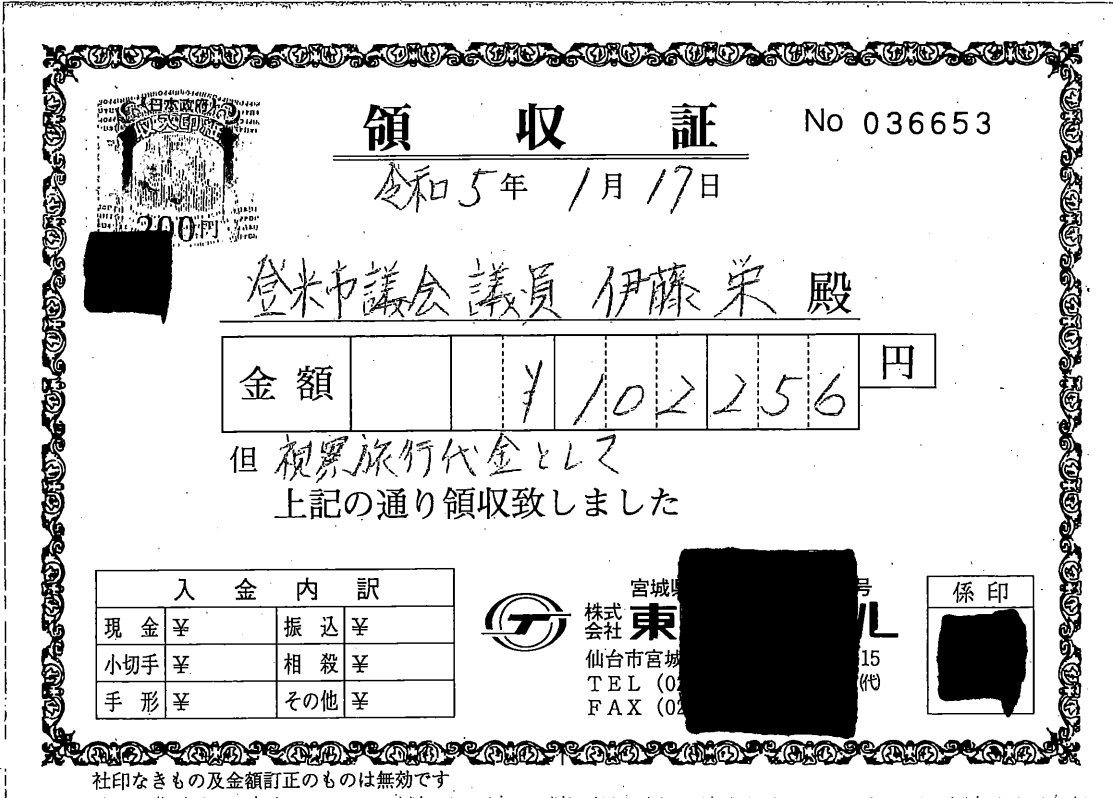 日本政府
収入印紙
200円
領収証
No 036653
令和5年1月17日
登米市議会議員 伊藤 栄 殿
金額 ¥102256 円
但 視察旅行代金として
上記の通り領収致しました
入金内訳
現金 ¥ 振込 ¥
小切手 ¥ 相殺 ¥
手形 ¥ その他 ¥
宮城県 号
株式会社 東 ル
仙台市宮城 15
TEL (02 (代)
FAX (02
係印
社印なきもの及金額訂正のものは無効です